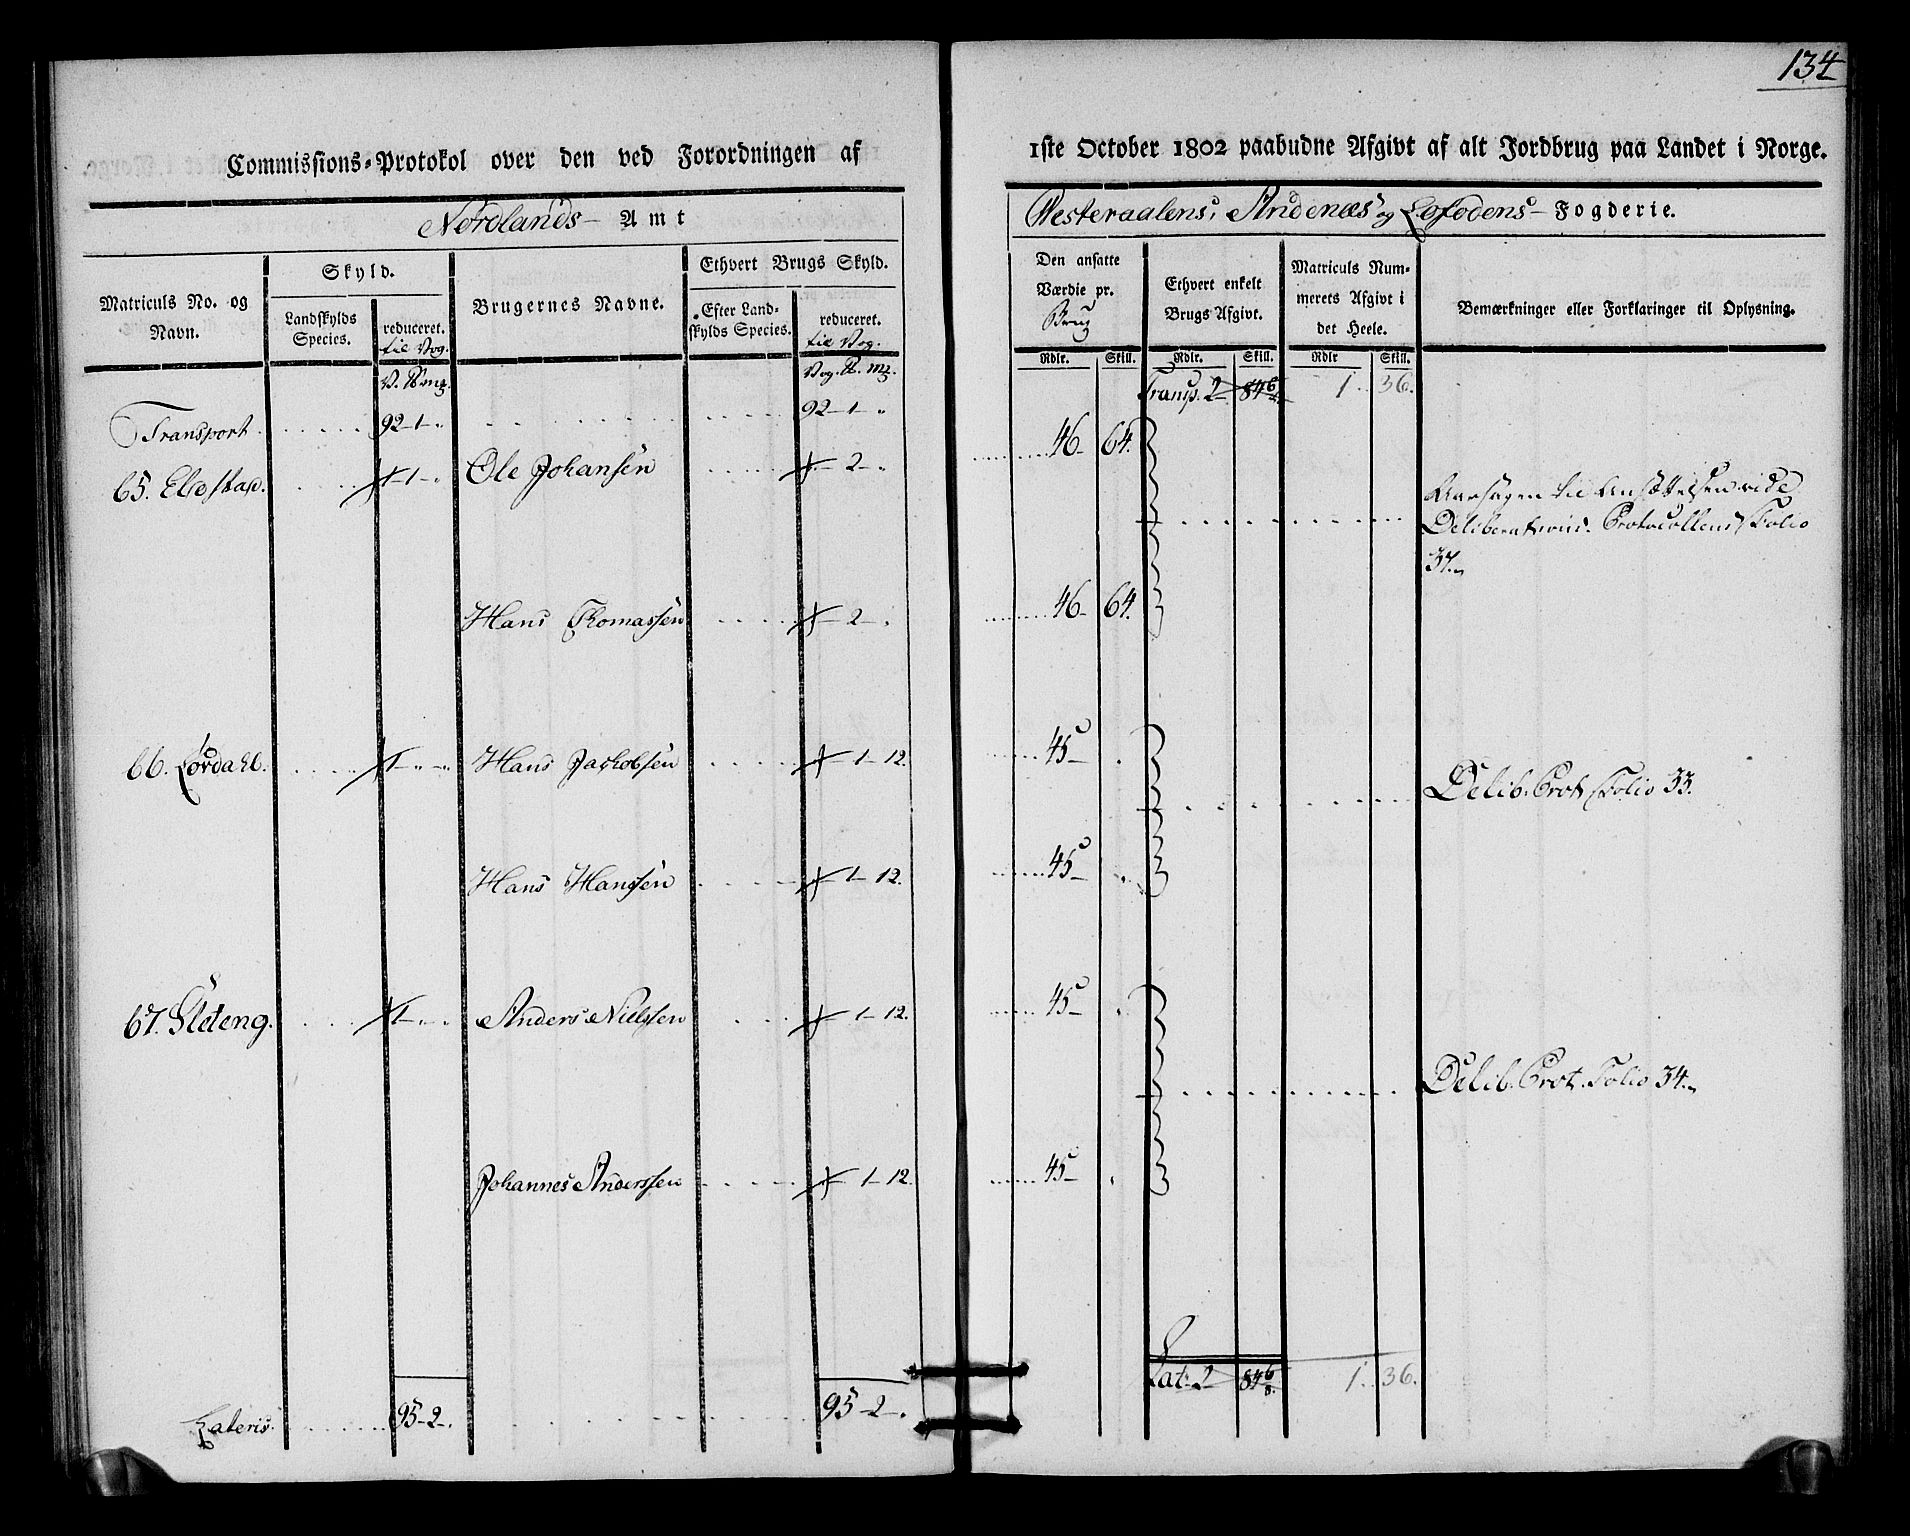 134
Commissions-Protokol over den ved Forordningen af
1ste October 1802 paabudne Afgivt af alt Jordbrug paa Landet i Norge.
Nordlands Amt
Westeraalens, Andenæs og Lofodens Fogderie.
Matriculs No. og Navn.
Skyld.
Landskylds Species.
reduceret. til Vog.
Brugernes Navne.
Ethvert Brugs Skyld.
Efter Landskylds Species.
reduceret. til Vog.
Den ansatte Værdie pr. Brug
Ethvert enkelt Brugs Afgivt.
Matriculs Nummerets Afgivt i det Heele.
Bemærkninger eller Forklaringer til Oplysning.
Rdlr. Skill. Rdlr. Skill. Rdlr Skill.
V. mg. Vog. mg.
Transp. 2 1. 36.
Transport 92-1-" 92-1-"
46 64.
65. 1-" Ole Johansen 2-"
til Ansættelsen vide
Deliberations. Protocollens Folio
37.
Hans Thomassen 2-" 46 64.
66. Lördahl. 1-"-" Hans Jachobsen 1-12. 45 .
Delib. Prot. Folio 33.
Hans Hanssen 1-12. 45 .
67. Sleteng. 1-"-" Anders Nielssen 1-12. 45 .
Delib. Prot. Folio 34.
Johannes Anderssen 1-12. 45 .
Lat. 2 1. 36.
Lateris 95-2-. 95-2-.